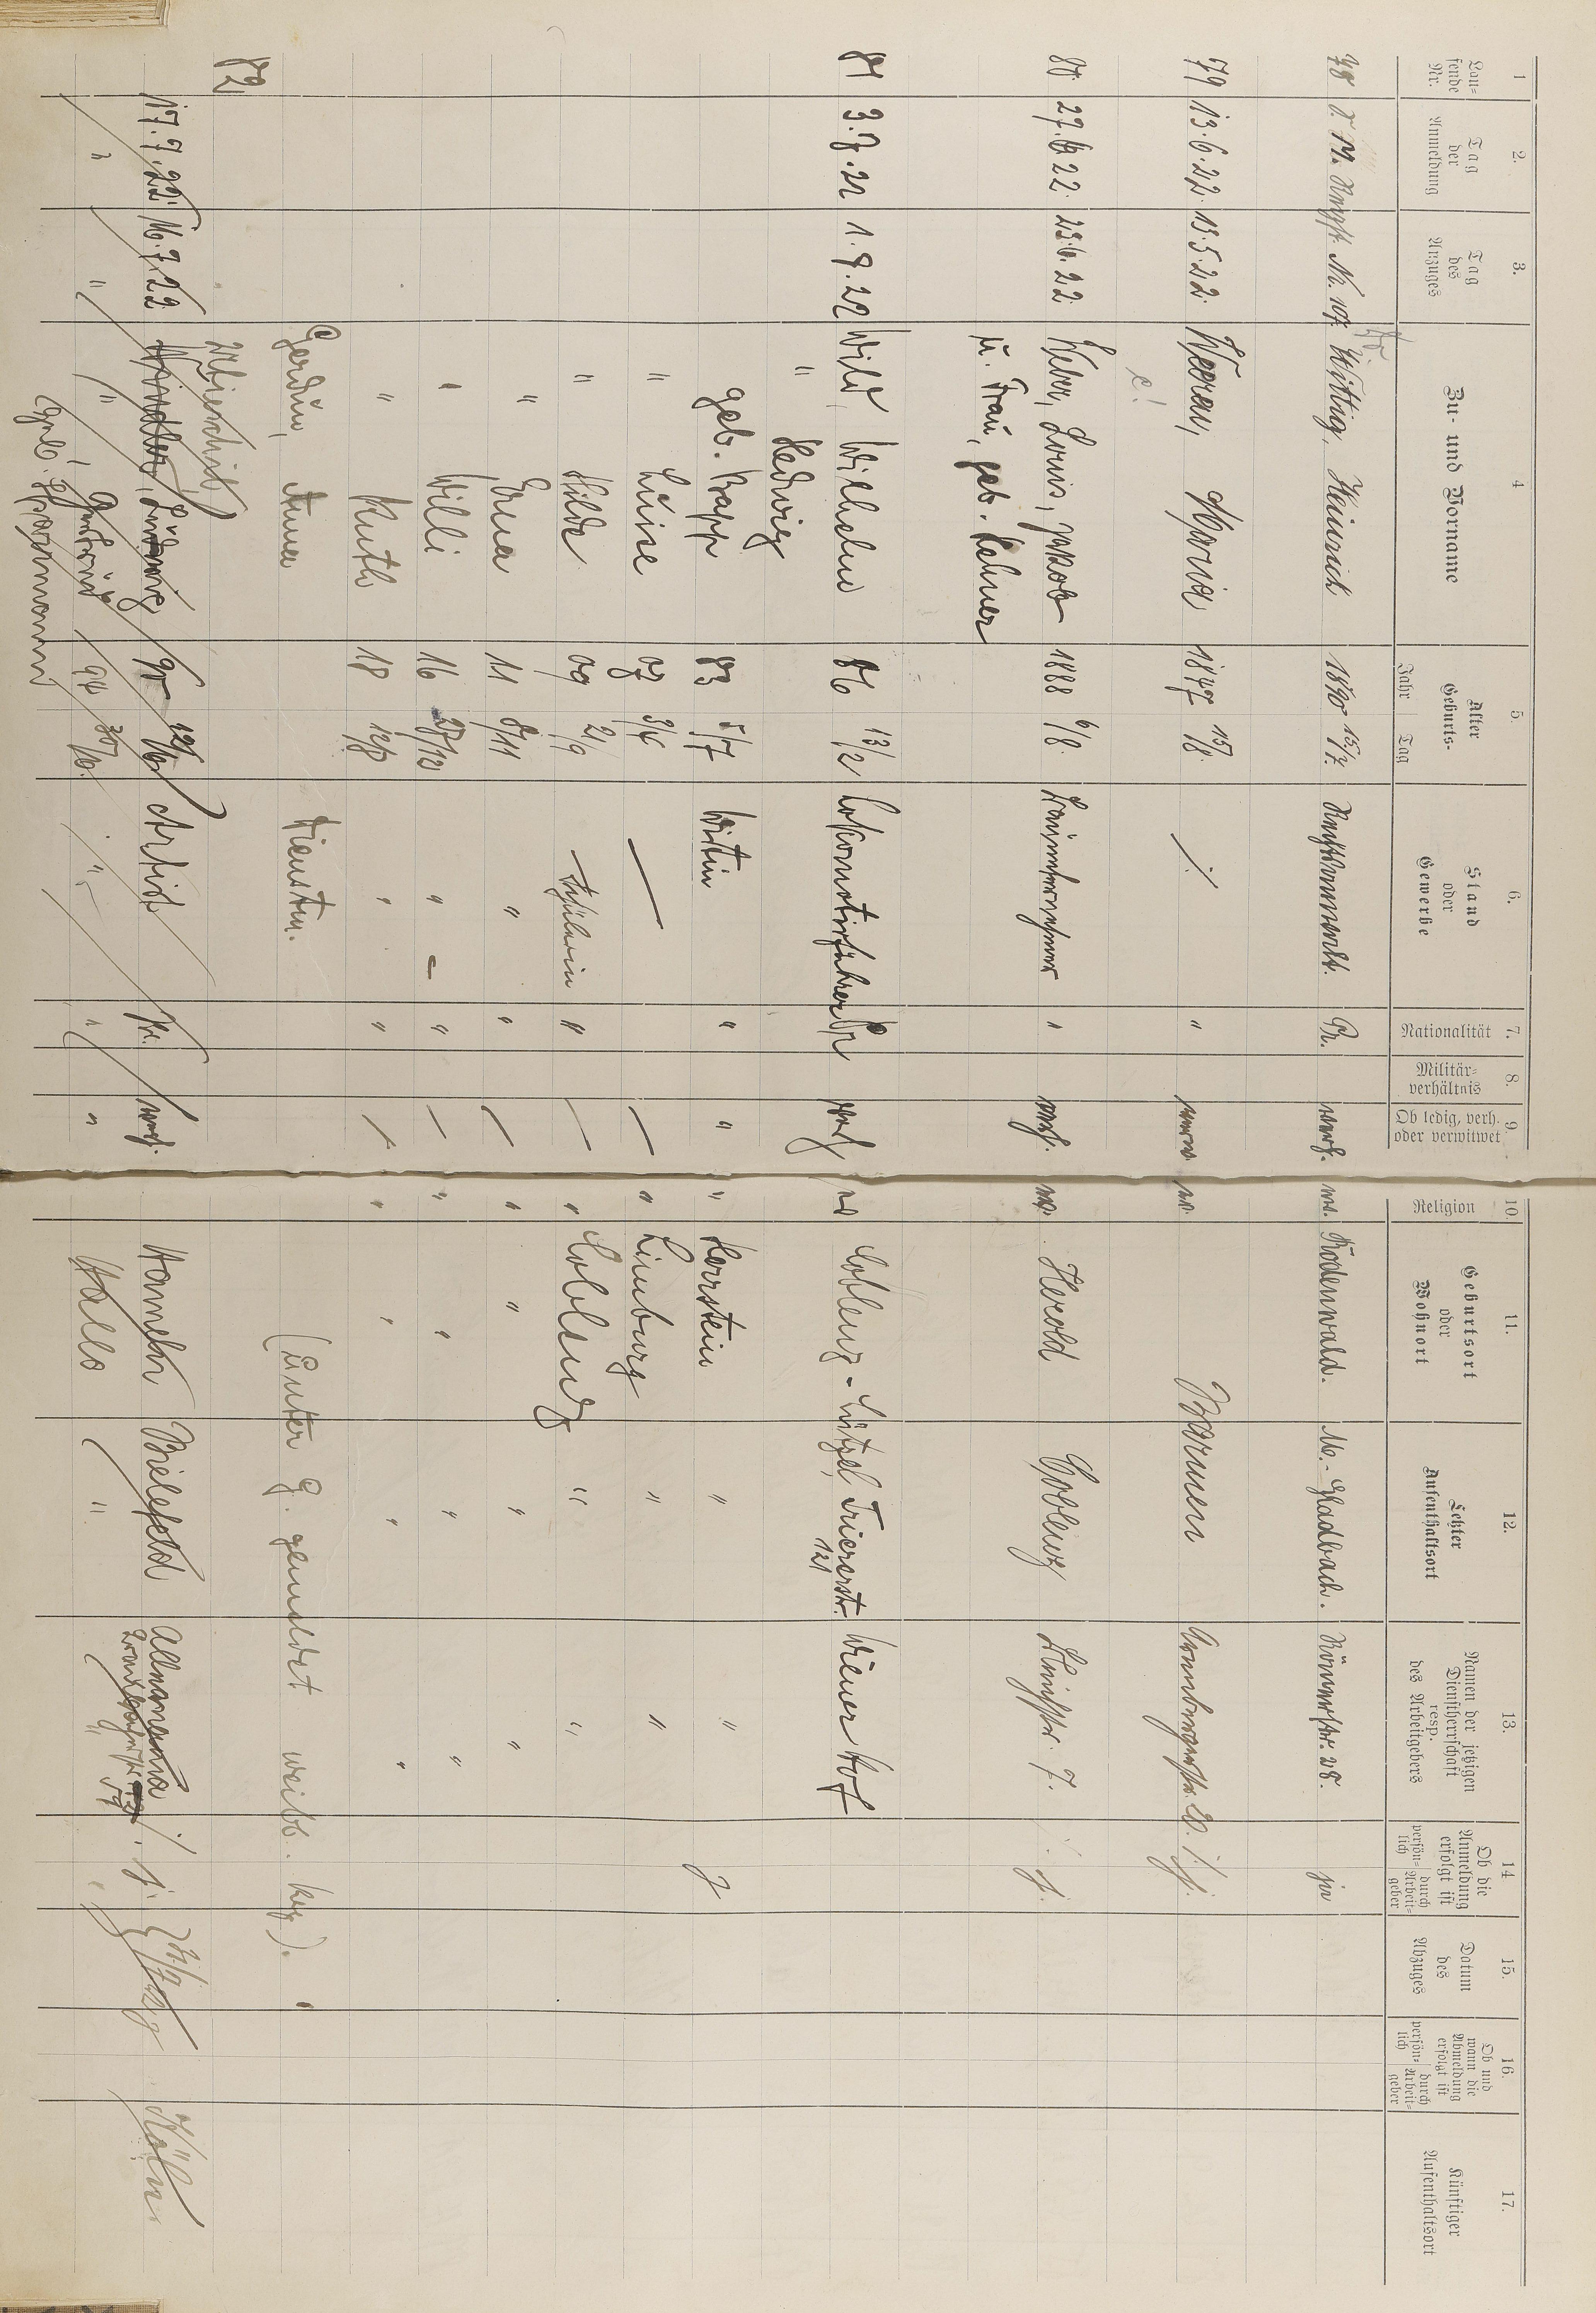 1 2. 3. 4 5. 6. 7. 8. 9 10. 11. 12. 13. 14 15. 16. 17.
Lau=
fende
Nr.
Tag
der
Anmeldung
Tag
des
Anzuges
Zu- und Vorname
Alter
Geburts-
Jahr Tag
Stand
oder
Gewerbe
Nationalität
Militär-
verhältnis
Ob ledig, verh.
oder verwitwet
Religion
Geburtsort
oder
Wohnort
Letzter
Aufenthaltsort
Namen der jetzigen
Dienstherrschaft
resp.
des Arbeitgebers
Ob die
Anmeldung
erfolgt ist
persön=
lich
durch
Arbeit=
geber
Datum
des
Abzuges
Ob und
wann die
Abmeldung
erfolgt ist
persön=
lich
durch
Arbeit=
geber
Künftiger
Aufenthaltsort
78 Wittig, Heinrich 1890 15/7. Rechtsanwalt. Pr. verh. ev. Rodenwald. M.-Gladbach. Römerstr. 28. ja
79 13.6.22. 13.5.22. Maria 1847 15/8. ./. " ev. Barmen 20. ./. j.
80. 27.6.22. 23.6.22. Weber, Louis, Jakob 1888 6/8. " verh. ev. Herold Coblenz 7. j.
u. Frau, geb. Lehner
81 3.7.22 1.7.22 Wild, Wilhelm 86 13/2 Lokomotivführer Pr verh ev Coblenz-Lützel, Triererstr. Wiener Hof
121
" Hedwig
geb. Rapp 83 5/7 Wirtin " " " Herrstein " " j
" Luise 07 3/4 — — " Limburg " "
" Hilde 09 2/9 Schülerin " — " Coblenz " "
" Erna 11 8/11 " " — " " " "
" Willi 16 27/12 " - " — " " " "
" Ruth 18 19/8 " " — " " " "
Gerdun, Anna Dienstm. (Unter G. gemeldet weibl. Reg).
82
17.7.22. 16.7.22. Windler, Ludwig, 90 12/6 Artist Pr. verh. Hameln Bielefeld Allmania ./. j. Köln
" " " Gertrud 94 30/6. " " " Halle " "
geb. Hermann